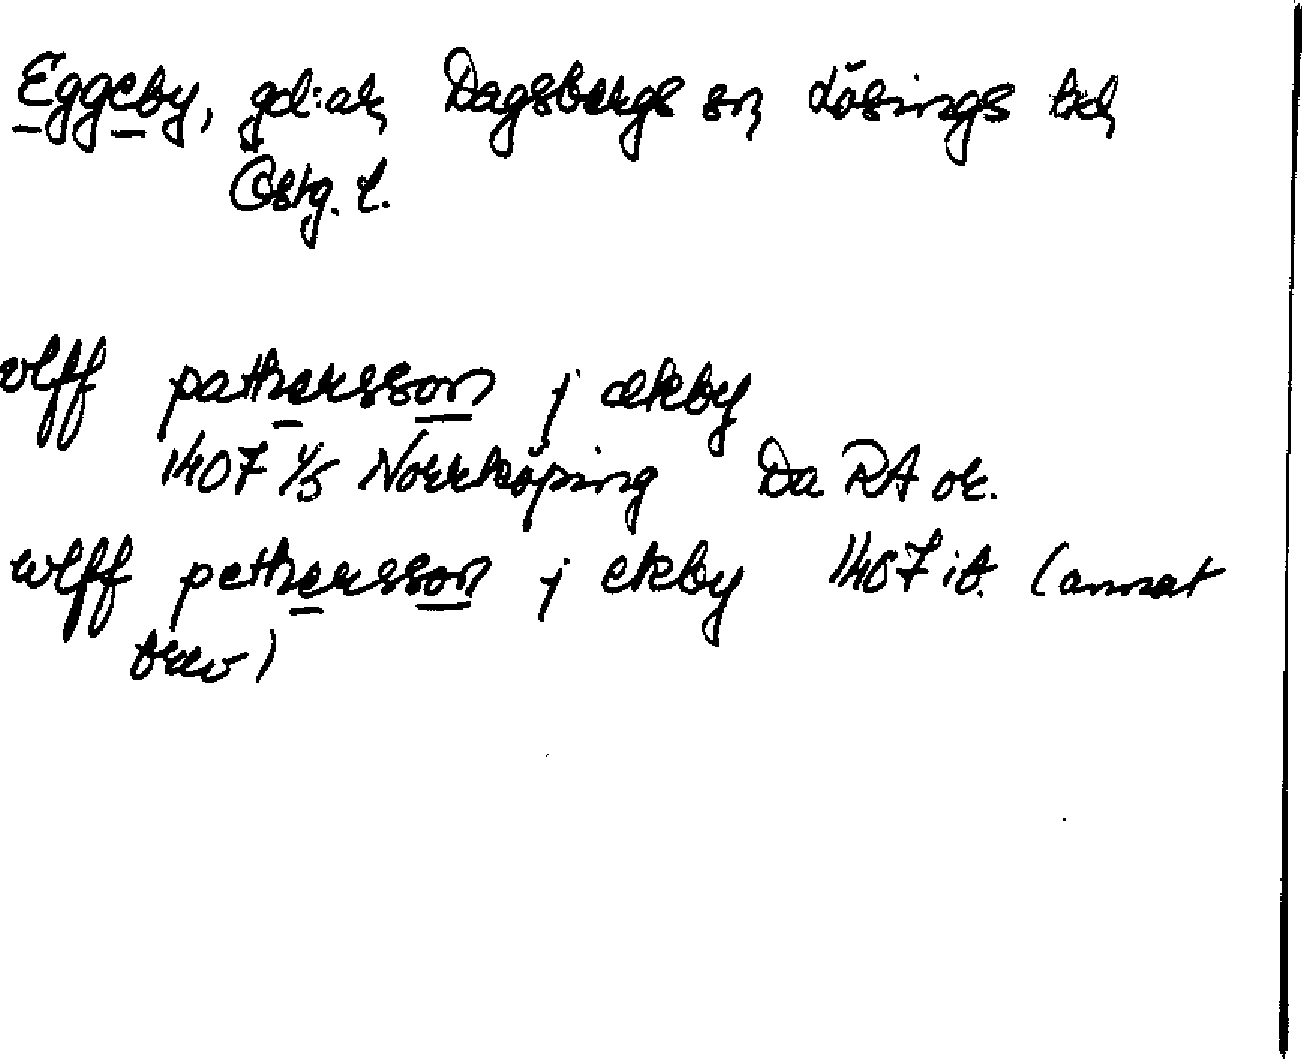 Eggeby, gd:ar, Dagsbergs sn, Lösings hd,
Östg. l.
vlff pathersson j ækby
1407 1/5 Norrköping Da RA or.
wlff pethersson j ekby 1407 ib. (annat
brev)